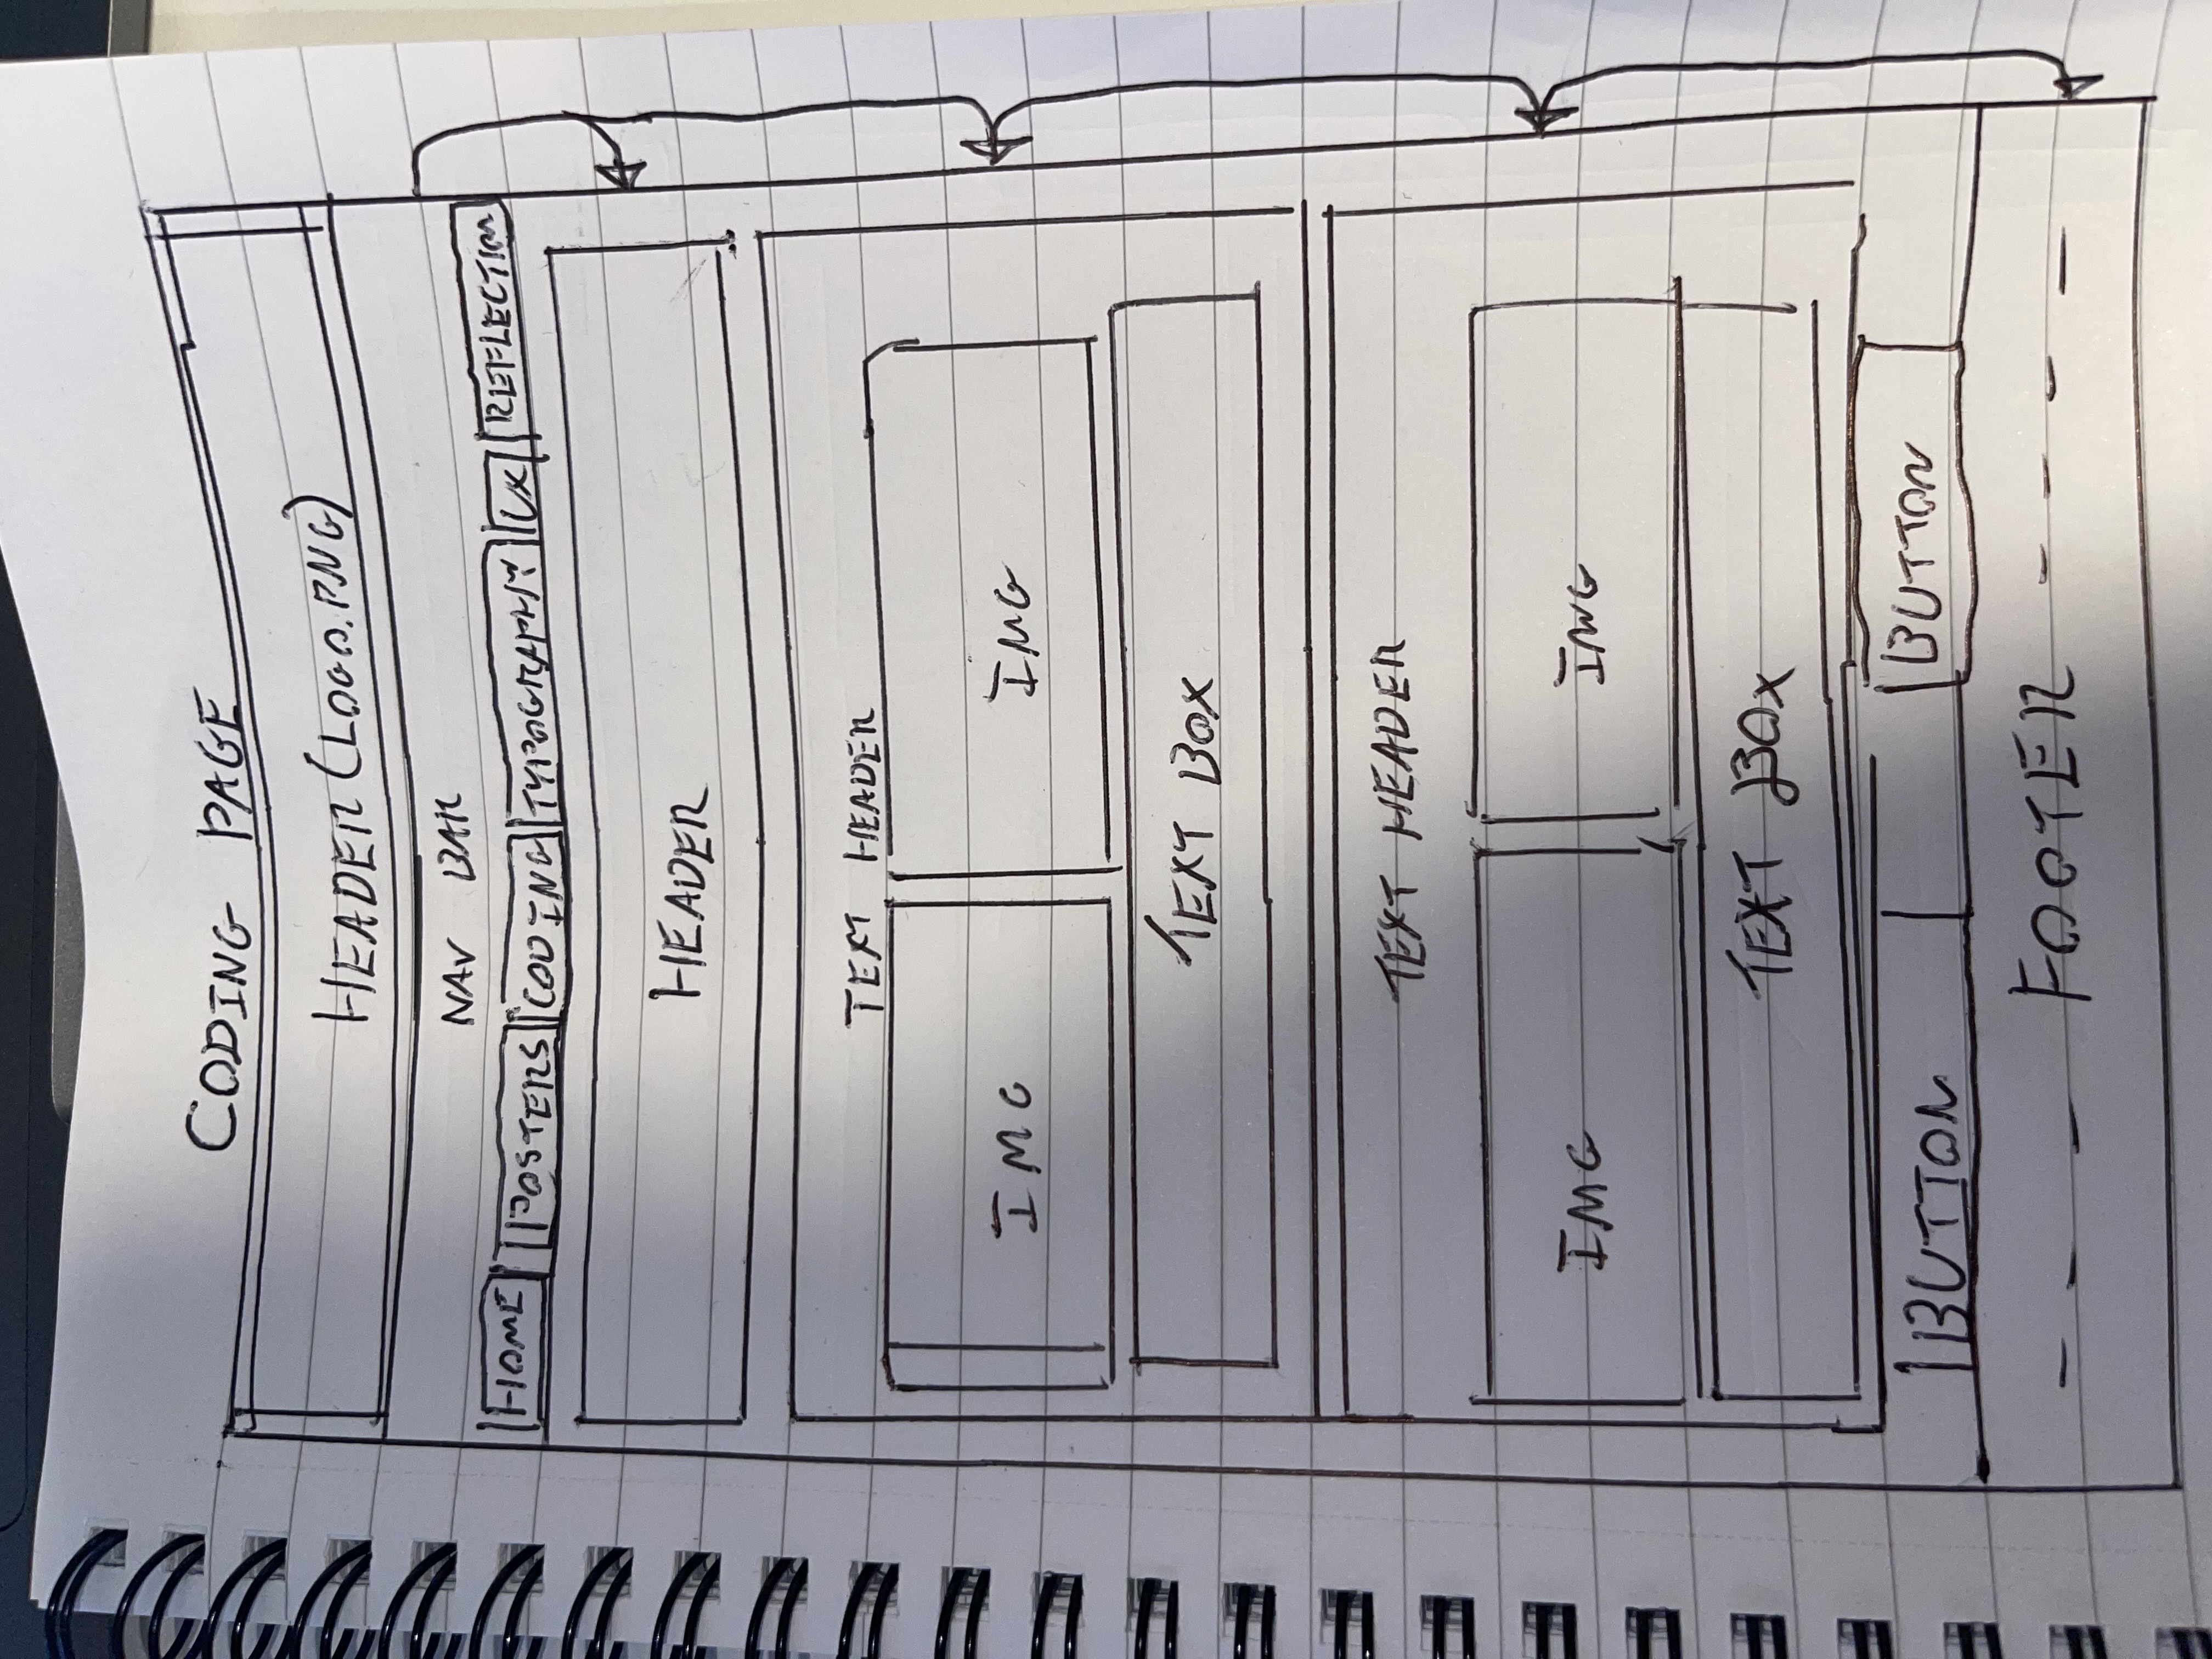 CODING PAGE
HEADER (LOGO.PNG)
NAV BAR
HOME POSTERS CODING TYPOGRAPHY UX REFLECTION
HEADER
TEXT HEADER
IMG IMG
TEXT BOX
TEXT HEADER
IMG IMG
TEXT BOX
BUTTON BUTTON
FOOTER